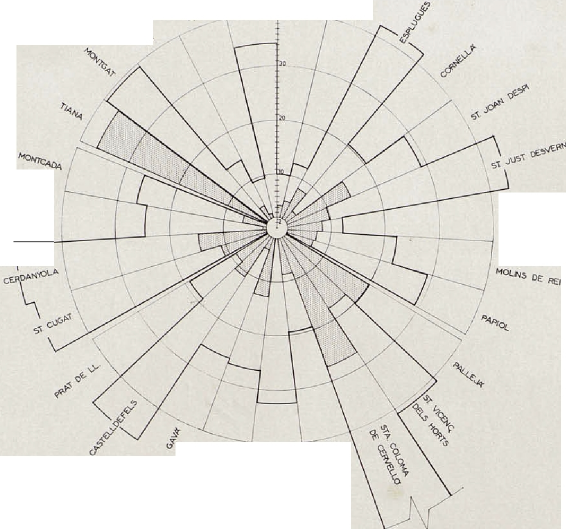 ESPLUGUES
CORNELLÀ
ST. JOAN DESPI
ST. JUST DESVERN
MOLINS DE REI
PAPIOL
PALLEJÀ
ST. VICENÇ
DELS HORTS
STA. COLOMA
DE CERVELLÓ
GAVÀ
CASTELLDEFELS
PRAT DE LL.
ST. CUGAT
CERDANYOLA
MONTCADA
TIANA
MONTGAT
30
20
10